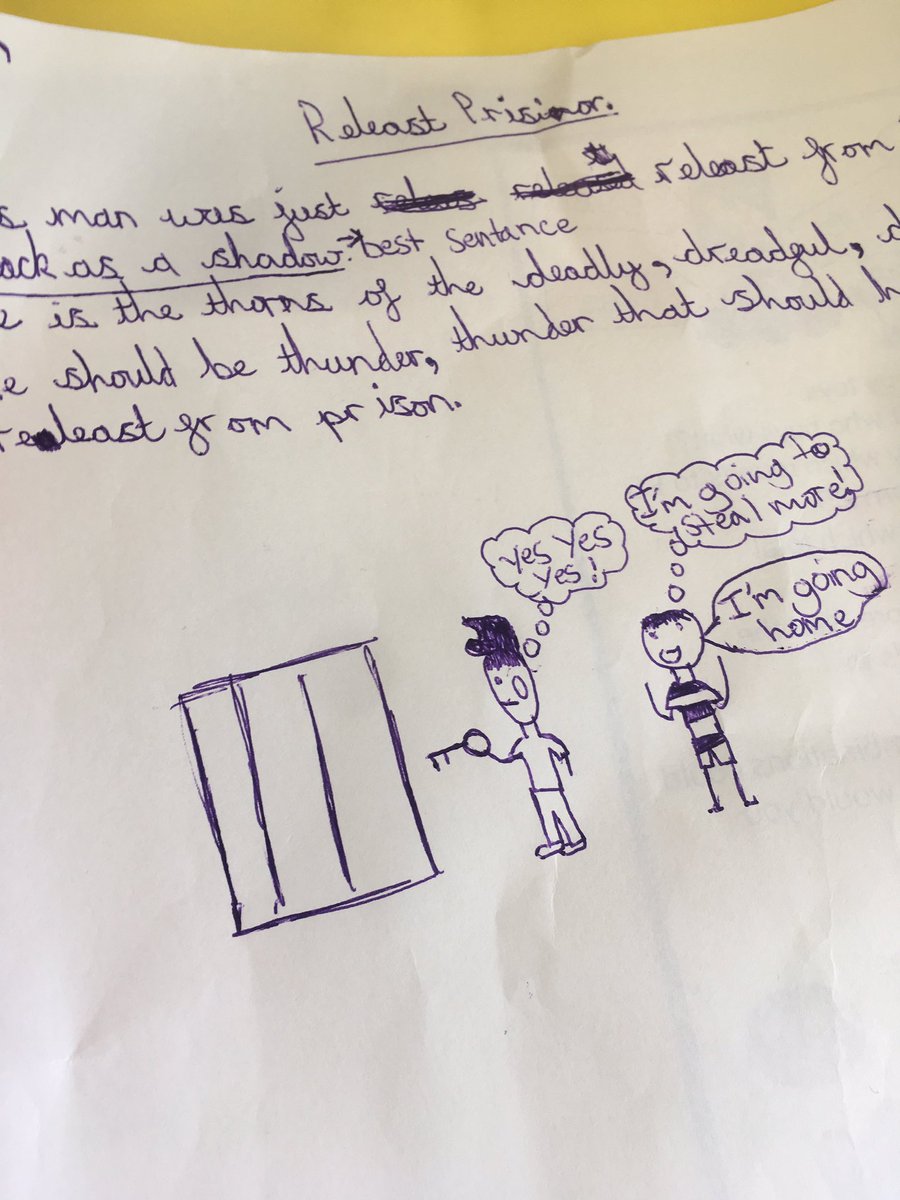 Releast Prisinor.
s man was just releast from
ack as a shadow. → best sentence
e is the thorns of the deadly, dreadful, d
e should be thunder, thunder that should h
releast from prison.
yes yes
yes!
I'm going to
steal more!
I'm going
home